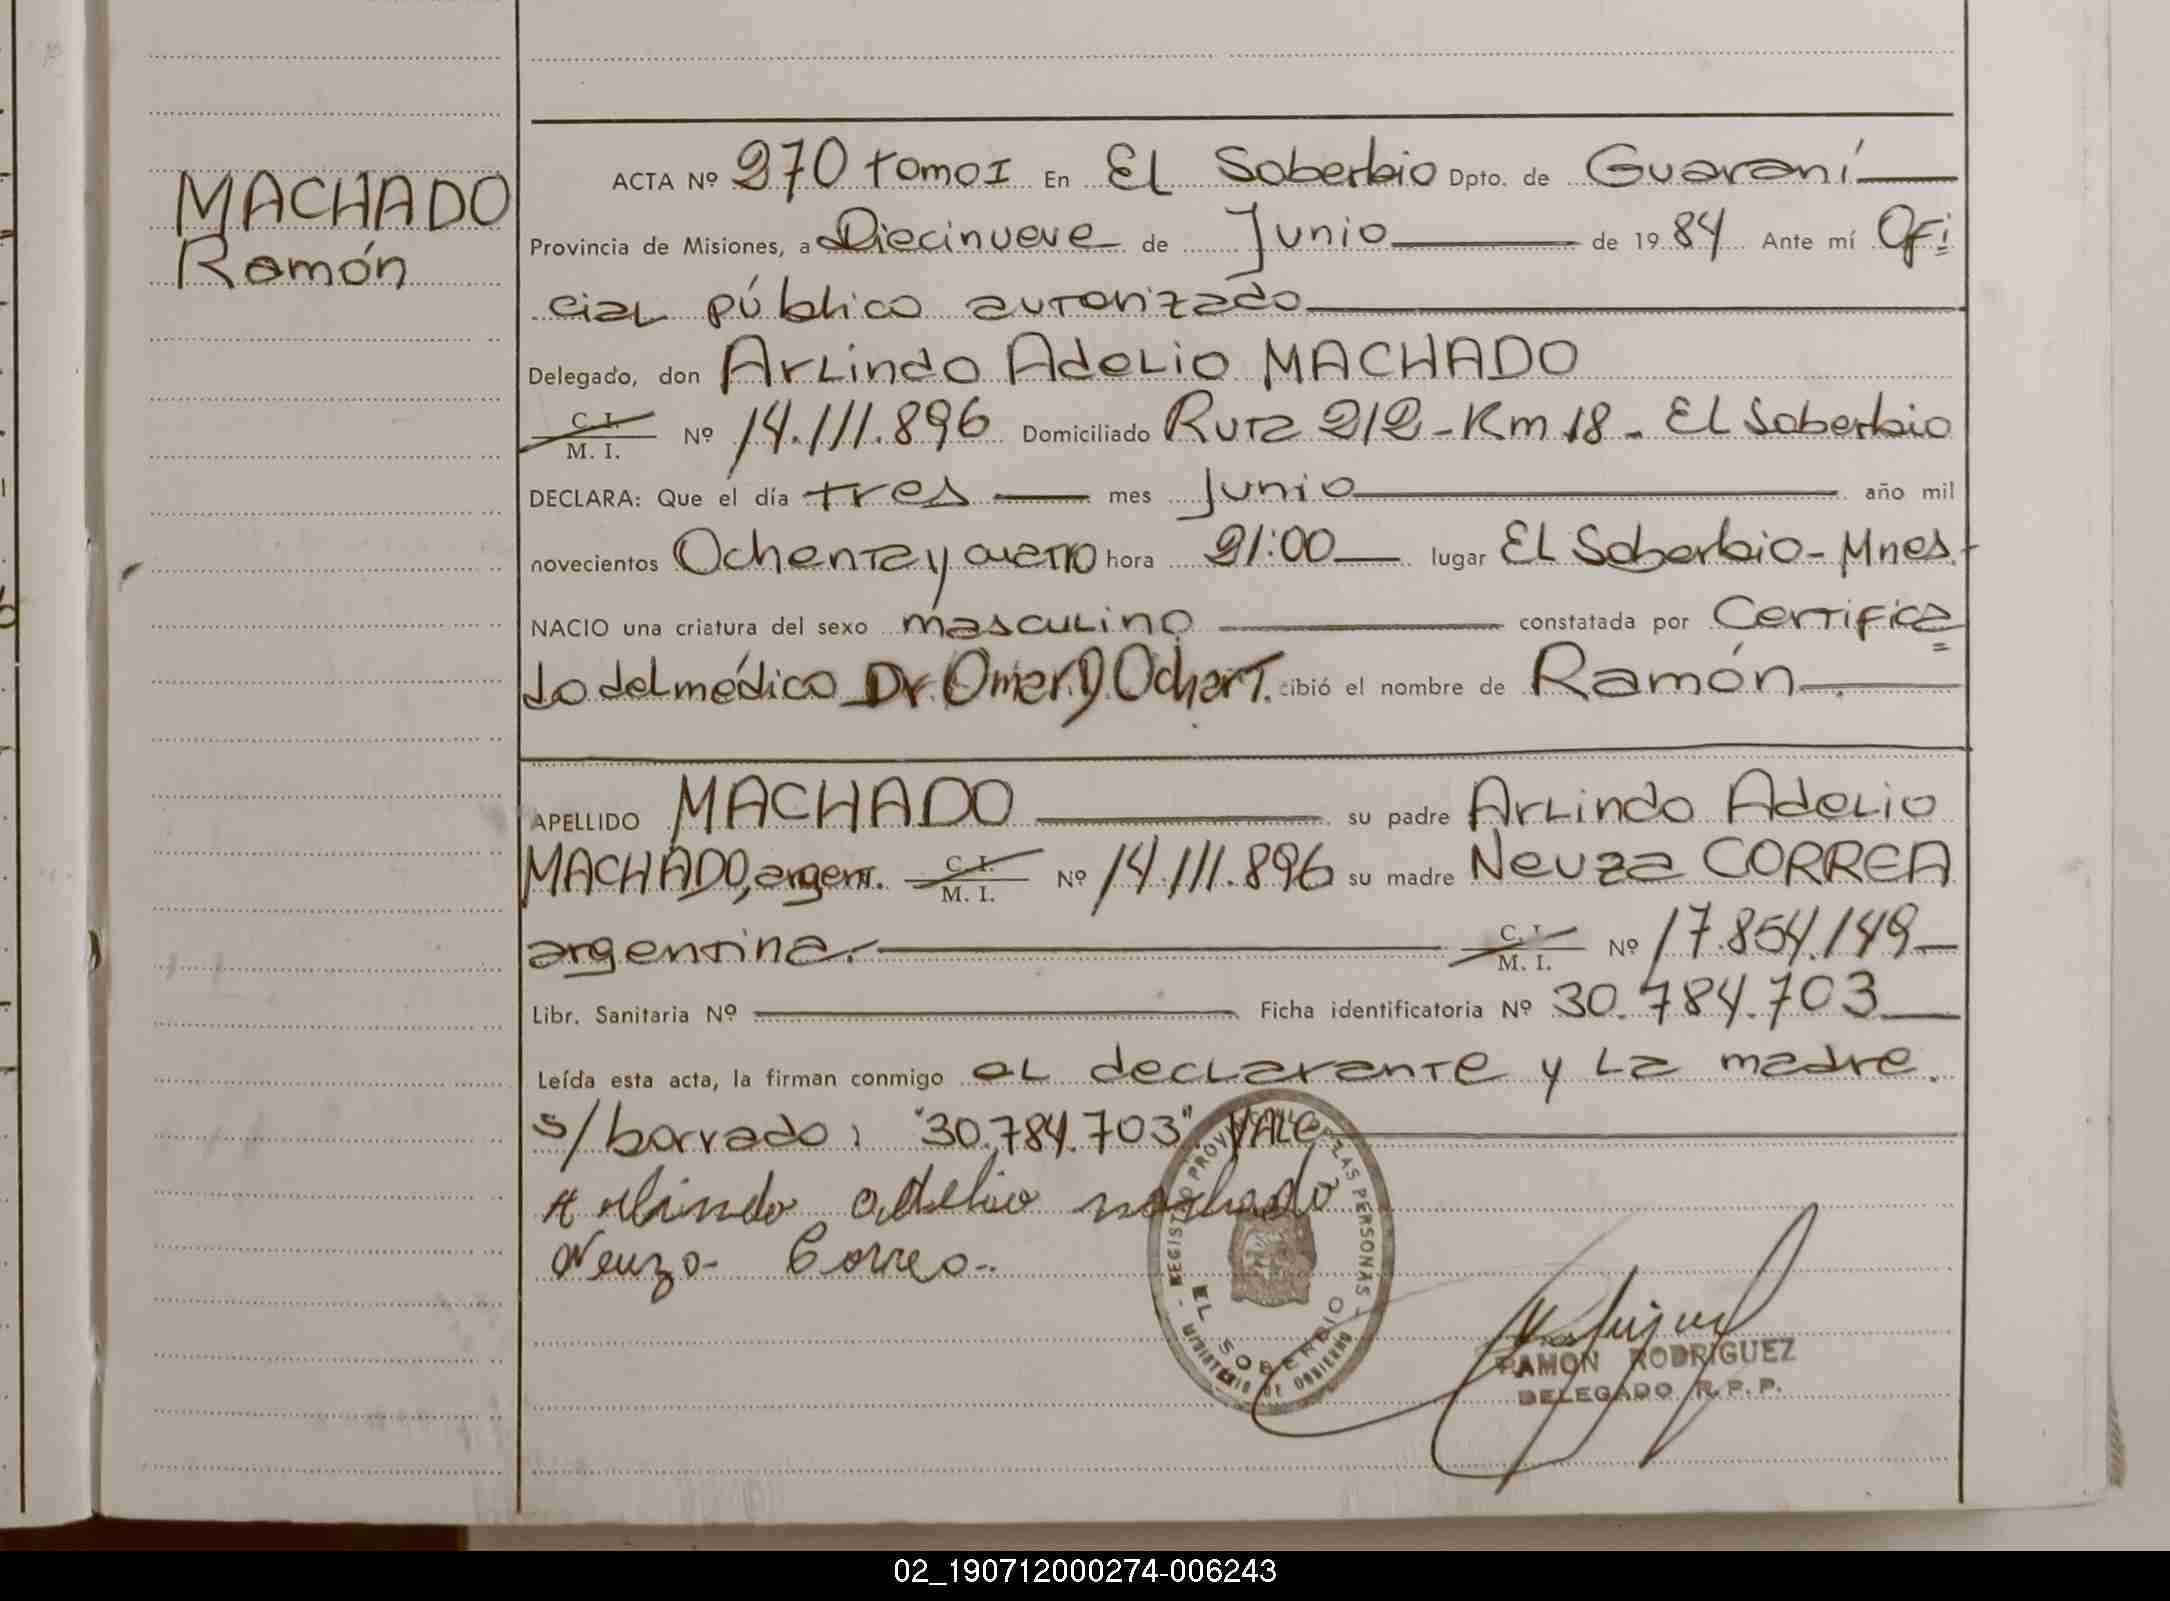 MACHADO
Ramón
ACTA Nº 270 tomo I En El Soberbio Dpto. de Guaraní
Provincia de Misiones, a Diecinueve de Junio de 1984 Ante mí Ofi
cial público autorizado
Delegado, don Arlindo Adelio MACHADO
C. I.
M. I. Nº 14.111.896 Domiciliado Ruta 212 - Km 18 - El Soberbio
DECLARA: Que el día tres mes junio año mil
novecientos Ochenta y cuatro hora 21:00 lugar El Soberbio - Mnes.
NACIO una criatura del sexo masculino constatada por Certifica
do del médico Dr. Omar D. Ochart. cibió el nombre de Ramón
APELLIDO MACHADO su padre Arlindo Adelio
MACHADO, argent. C. I. M. I. Nº 14.111.896 su madre Neuza CORREA
argentina. C. I. M. I. Nº 17.854.149
Libr. Sanitaria Nº Ficha identificatoria Nº 30.784.703
Leída esta acta, la firman conmigo el declarante y la madre.
s/borrado: "30.784.703". VALE
Arlindo adelio machado
Neuza Correa
REGISTRO PROVINCIAL DE LAS PERSONAS
EL SOBERBIO
MINISTERIO DE GOBIERNO
RAMON RODRIGUEZ
DELEGADO R. P. P.
02_190712000274-006243